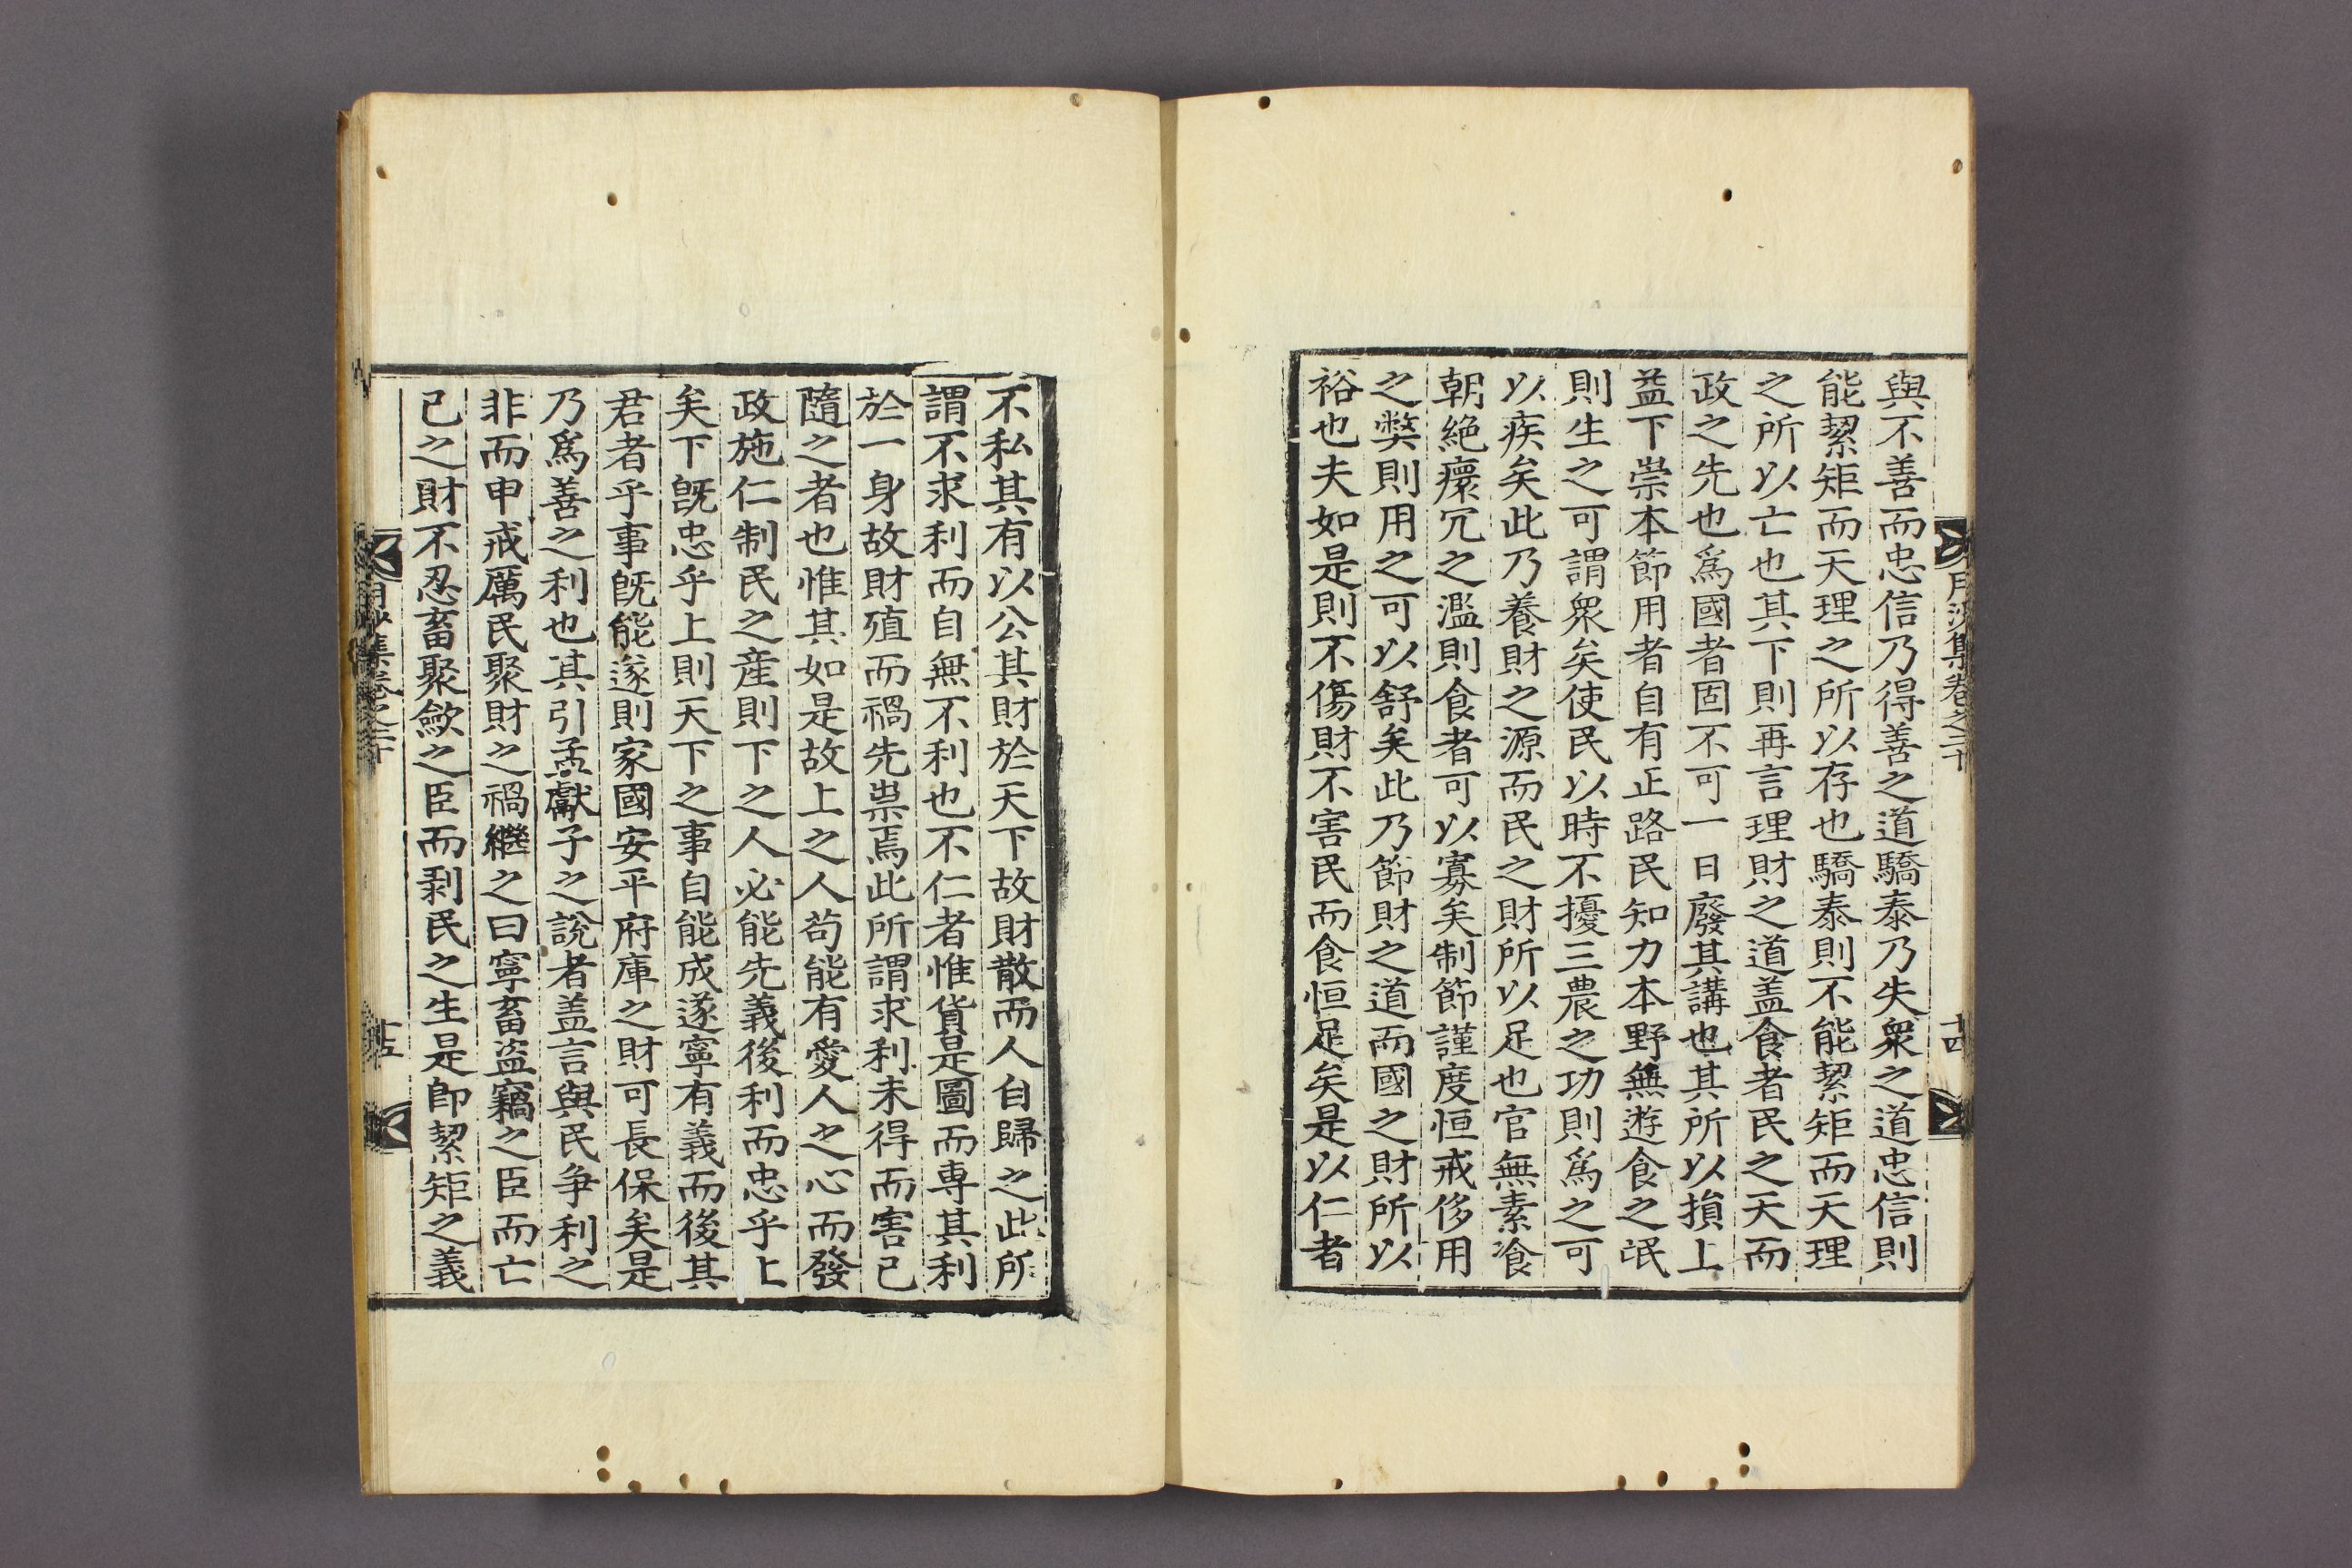 與不善而忠信乃得善之道驕泰乃失衆之道忠信則
能絜矩而天理之所以存也驕泰則不能絜矩而天理
之所以亡也其下則再言理財之道盖食者民之天而
政之先也爲國者固不可一日廢其講也其所以損上
益下崇本節用者自有正路民知力本野無遊食之氓
則生之可謂衆矣使民以時不擾三農之功則爲之可
以疾矣此乃養財之源而民之財所以足也官無素飡
朝絶癏冗之濫則食者可以寡矣制節謹度恒戒侈用
之獘則用之可以舒矣此乃節財之道而國之財所以
裕也夫如是則不傷財不害民而食恒足矣是以仁者
不私其有以公其財於天下故財散而人自歸之此所
謂不求利而自無不利也不仁者惟貨是圖而専其利
於一身故財殖而禍先祟焉此所謂求利未得而害已
隨之者也惟其如是故上之人苟能有愛人之心而發
政施仁制民之産則下之人必能先義後利而忠乎上
矣下旣忠乎上則天下之事自能成遂寧有義而後其
君者乎事旣能遂則家國安平府庫之財可長保矣是
乃爲善之利也其引孟獻子之說者盖言與民爭利之
非而申戒厲民聚財之禍繼之曰寧畜盗竊之臣而亡
己之財不忍畜聚歛之臣而剥民之生是卽絜矩之義
月沙集卷之三十
十四
月沙集卷之三十
十五